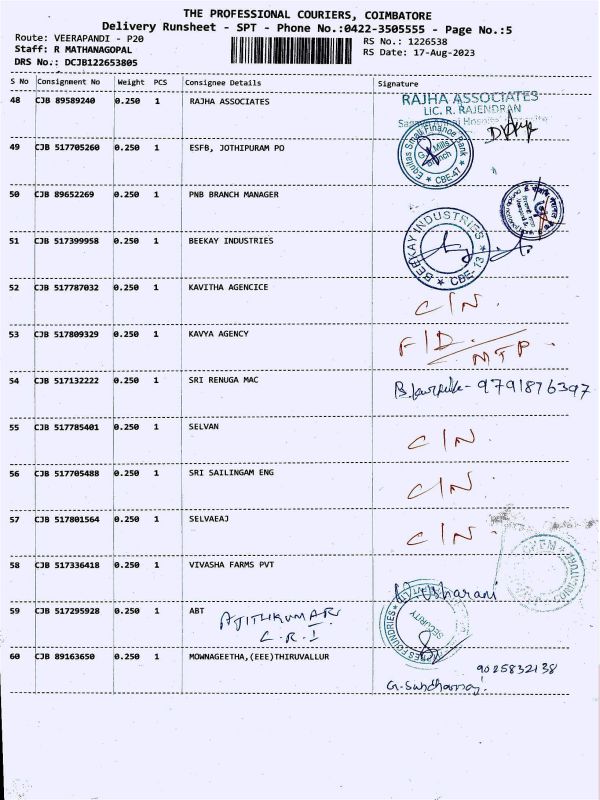 THE PROFESSIONAL COURIERS, COIMBATORE
Delivery Runsheet - SPT - Phone No.:0422-3505555 - Page No.:5
Route: VEERAPANDI - P20 RS No.: 1226538
Staff: R MATHANAGOPAL RS Date: 17-Aug-2023
DRS No.: DCJB122653805
S No Consignment No Weight PCS Consignee Details Signature
48 CJB 89589240 0.250 1 RAJHA ASSOCIATES
RAJHA ASSOCIATES
LIC. R. RAJENDRAN
49 CJB 517705260 0.250 1 ESFB, JOTHIPURAM PO
Equitas Small Finance Bank
G Mills
Branch
CBE-47
50 CJB 89652269 0.250 1 PNB BRANCH MANAGER
51 CJB 517399958 0.250 1 BEEKAY INDUSTRIES
BEEKAY INDUSTRIES
CBE-13
52 CJB 517787032 0.250 1 KAVITHA AGENCICE
C/N.
53 CJB 517809329 0.250 1 KAVYA AGENCY
F/D.
MTP.
54 CJB 517132222 0.250 1 SRI RENUGA MAC
9791876397
55 CJB 517785401 0.250 1 SELVAN
C/N.
56 CJB 517705488 0.250 1 SRI SAILINGAM ENG
C/N.
57 CJB 517801564 0.250 1 SELVAEAJ
C/N.
58 CJB 517336418 0.250 1 VIVASHA FARMS PVT
59 CJB 517295928 0.250 1 ABT
AJITHKUMAR
C.R.I
SECURITY
FOUNDRIES
60 CJB 89163650 0.250 1 MOWNAGEETHA,(EEE)THIRUVALLUR
9025832138